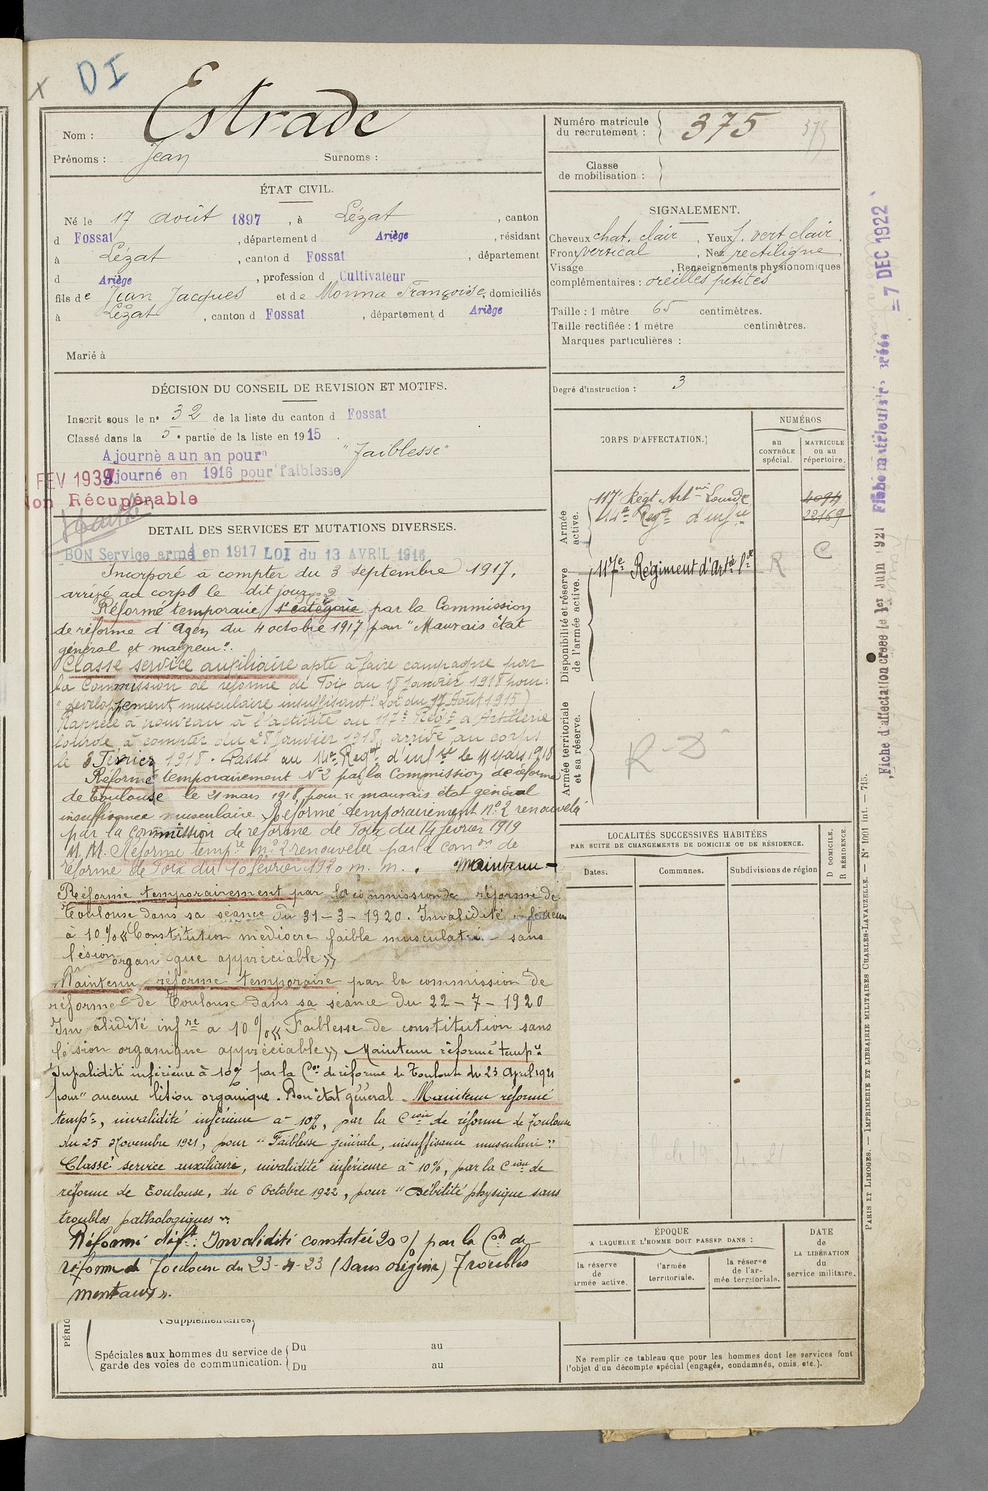 x DI
Nom : Estrade
Prénoms : Jean Surnoms :
ÉTAT CIVIL.
Né le 17 août 1897, à Lézat, canton
d Fossat, département d Ariège, résidant
à Lézat, canton d Fossat, département
d Ariège, profession d Cultivateur
fils de Jean Jacques et de Monna Françoise, domiciliés
à Lézat, canton d Fossat, département d Ariège
Marié à
DÉCISION DU CONSEIL DE REVISION ET MOTIFS.
Inscrit sous le n° 32 de la liste du canton d Fossat
Classé dans la 5e partie de la liste en 1915.
Ajourné à un an pour "faiblesse"
Ajourné en 1916 pour faiblesse
FEV 1939
Non Récupérable
DETAIL DES SERVICES ET MUTATIONS DIVERSES.
BON Service armé en 1917 LOI du 13 AVRIL 1916
Incorporé à compter du 3 septembre 1917,
arrivé au corps le dit jour.
Réformé temporaire 1e catégorie par la Commission
de réforme d'Agen du 4 octobre 1917 pour "Mauvais état
général et maigreur".
Classé service auxiliaire apte à faire campagne par
la Commission de réforme de Foix du 18 janvier 1918 pour :
"développement musculaire insuffisant" (Loi du 17 Août 1915)
Rappelé à nouveau à l'activité au 117e Régt d'Artillerie
lourde à compter du 28 janvier 1918, arrivé au corps
le 8 Février 1918. Passé au 14e Regt d'infie le 11 mars 1918
Réformé temporairement N°2 par la Commission de réforme
de Toulouse le 21 mars 1918, pour "mauvais état général
insuffisance musculaire. Réformé temporairement n°2 renouvelé
par la Commission de réforme de Foix du 14 février 1919
M.M. Réforme tempre n°2 renouvelée par la comon de
réforme de Foix du 10 février 1920 m. m. . Maintenu -
Réformé temporairement par la commission de réforme de
Toulouse dans sa séance du 31-3-1920. Invalidité inférieure
à 10% "Constitution médiocre faible musculature - sans
lésion organique appréciable"
Maintenu réforme temporaire par la commission de
réforme de Toulouse dans sa séance du 22-7-1920
Invalidité infre à 10% "Faiblesse de constitution sans
lésion organique appréciable" Maintenu réformé tempre
Invalidité inférieure à 10% par la Con de réforme de Toulouse du 23 April 1921
pour "aucune lésion organique. Bon état général. Maintenu réformé
tempre, invalidité inférieure à 10%, par la Cion de réforme de Toulouse
du 25 Novembre 1921, pour "Faiblesse générale, insuffisance musculaire"
Classé service auxiliaire, invalidité inférieure à 10%, par la Cion de
réforme de Toulouse, du 6 Octobre 1922, pour "Débilité physique sans
troubles pathologiques".
Réformé déft : Invalidité constatée 20% par la Con de
réforme de Toulouse du 23-4-23 (sans origine) Troubles
mentaux".
(Supplémentaires)
PÉRIO
Spéciales aux hommes du service de garde des voies de communication.
Du au
Du au
Numéro matricule du recrutement : 375
375
Classe de mobilisation :
SIGNALEMENT.
Cheveux chat. clair, Yeux J. vert clair,
Front vertical, Nez rectiligne,
Visage , Renseignements physionomiques
complémentaires : oreilles petites
Taille : 1 mètre 65 centimètres.
Taille rectifiée : 1 mètre centimètres.
Marques particulières :
Degré d'instruction : 3
CORPS D'AFFECTATION.
NUMÉROS
au contrôle spécial.
MATRICULE ou au répertoire.
Armée active.
117e Régt Artie Lourde
14e Regt d'infie 22169
Disponibilité et réserve de l'armée active.
117e Régiment d'Artie Lde R C
Armée territoriale et sa réserve.
R-D
LOCALITÉS SUCCESSIVES HABITÉES
PAR SUITE DE CHANGEMENTS DE DOMICILE OU DE RÉSIDENCE.
Dates. Communes. Subdivisions de région
D DOMICILE.
R RÉSIDENCE.
ÉPOQUE
A LAQUELLE L'HOMME DOIT PASSER DANS :
la réserve de armée active.
l'armée territoriale.
la réserve de l'armée territoriale.
DATE
de
LA LIBÉRATION
du
service militaire.
Ne remplir ce tableau que pour les hommes dont les services font
l'objet d'un décompte spécial (engagés, condamnés, omis, etc.).
Fiche d'affectation créée le 1er Juin 1921
Fiche matriculaire créée = 7 DEC 1922
PARIS ET LIMOGES. — IMPRIMERIE ET LIBRAIRIE MILITAIRES CHARLES-LAVAUZELLE. — N° 1001 int. — 715.